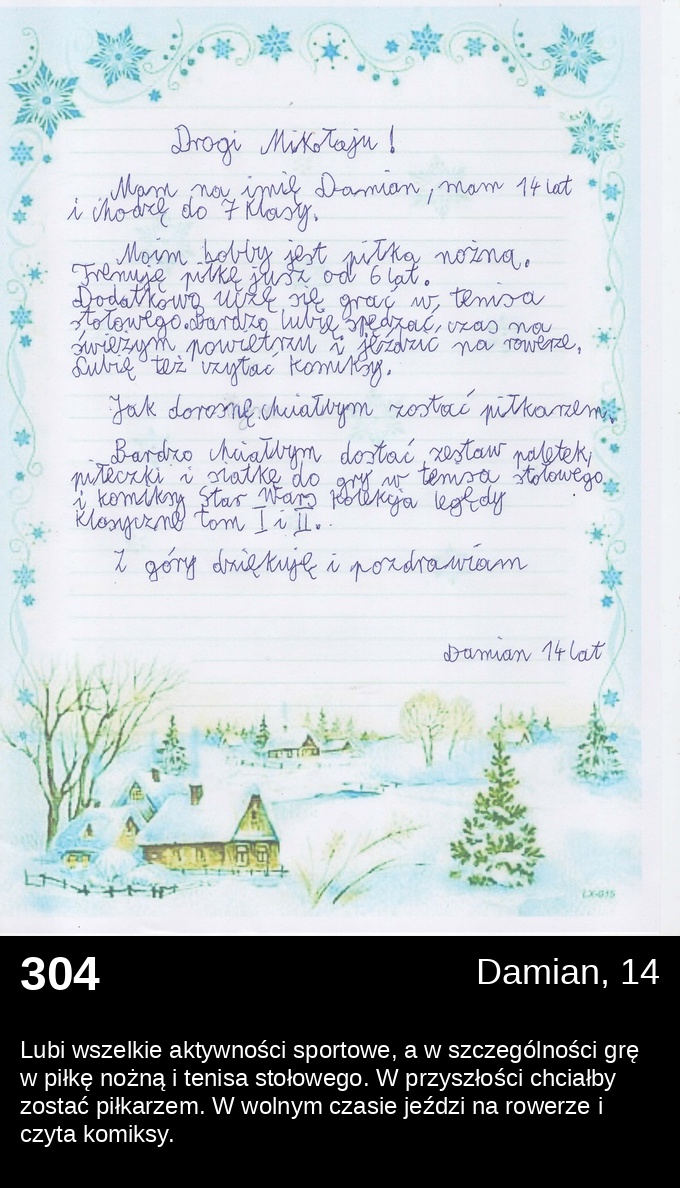 Drogi Mikołaju!
Mam na imię Damian, mam 14 lat
i chodzę do 7 klasy.
Moim hobby jest piłka nożna.
Trenuję piłkę jusz od 6 lat.
Dodatkowo uczę się grać w tenisa
stołowego. Bardzo lubię spędzać czas na
świeżym powietrzu i jeździć na rowerze.
Lubię też czytać komiksy.
Jak dorosnę chciałbym zostać piłkarzem.
Bardzo chciałbym dostać zestaw paletek,
piłeczki i siatkę do gry w tenisa stołowego
i komiksy Star Wars kolekcja legędy
klasyczne tom I i II.
Z góry dziękuję i pozdrawiam
Damian 14 lat
LX-015
304
Damian, 14
Lubi wszelkie aktywności sportowe, a w szczególności grę
w piłkę nożną i tenisa stołowego. W przyszłości chciałby
zostać piłkarzem. W wolnym czasie jeździ na rowerze i
czyta komiksy.